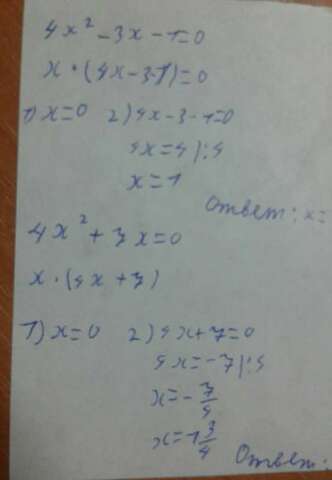 4x² - 3x - 1 = 0
x · (4x - 3 - 1) = 0
1) x = 0 2) 4x - 3 - 1 = 0
4x = 4 | : 4
x = 1
Ответ: x =
4x² + 7x = 0
x · (4x + 7)
1) x = 0 2) 4x + 7 = 0
4x = -7 | : 4
x = - 7/4
x = 1 3/4
Ответ: